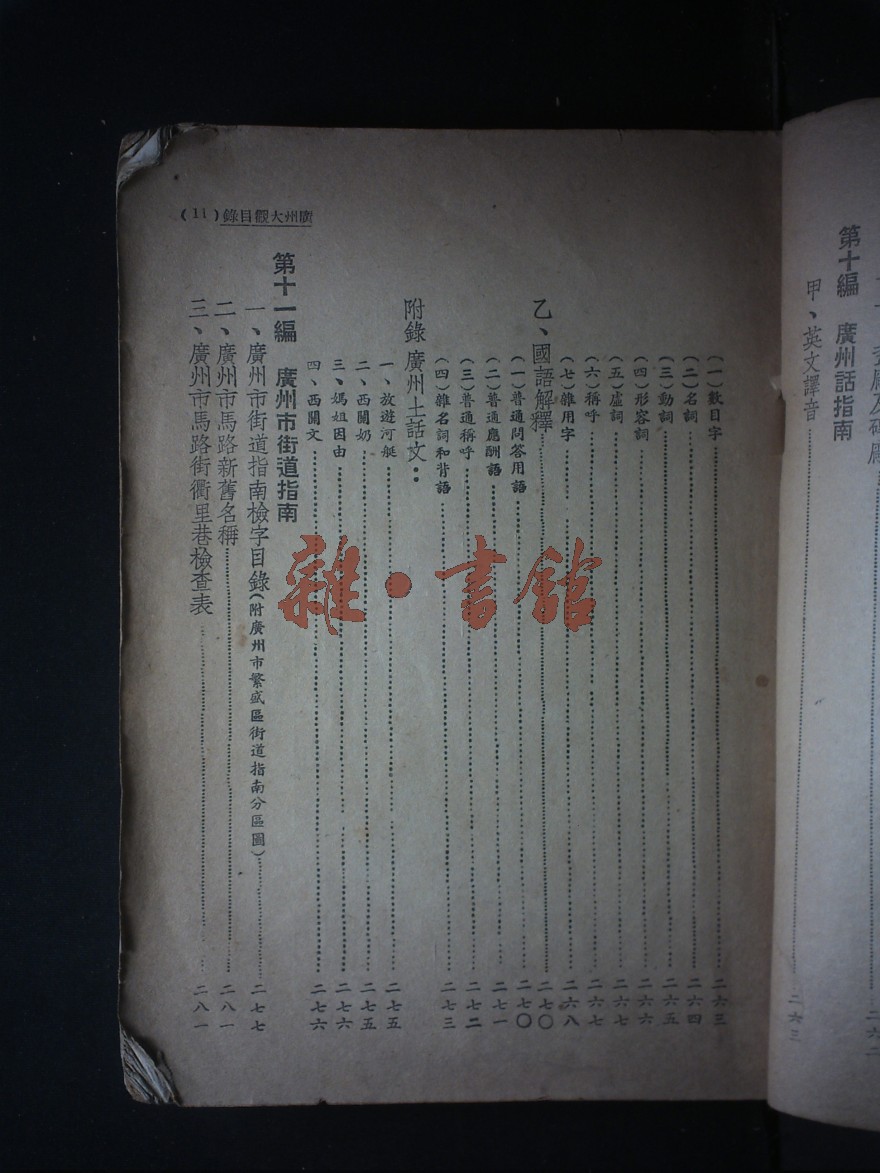 第十編　廣州話指南
甲、英文譯音……二六三
廣州大觀目錄（11）
（一）數目字……二六三
（二）名詞……二六四
（三）動詞……二六五
（四）形容詞……二六六
（五）虛詞……二六七
（六）稱呼……二六七
（七）雜用字……二六八
乙、國語解釋……二七〇
（一）普通問答用語……二七〇
（二）普通應酬語……二七一
（三）普通稱呼……二七二
（四）雜名詞和背語……二七三
附錄　廣州土話文：
一、放遊河艇……二七五
二、西關奶……二七五
三、媽姐因由……二七六
四、西關文……二七六
第十一編　廣州市街道指南
一、廣州市街道指南檢字目錄（附廣州市繁盛區街道指南分區圖）……二七七
二、廣州市馬路新舊名稱……二八一
三、廣州市馬路街衢里巷檢查表……二八一
雜・書館